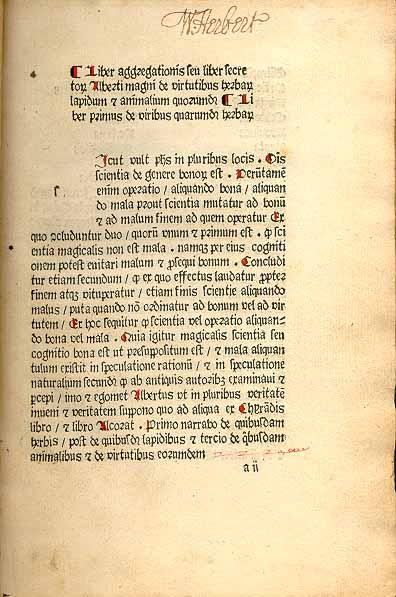 W Herbert
¶ Liber aggregationis seu liber secre
toꝝ Alberti magni de virtutibus herbaꝝ
lapidum ⁊ animalium quorundā ¶ Li
ber primus de viribus quarundā herbaꝝ
s
Icut vult ph̄s in pluribus locis . Ōis
scientia de genere bonoꝝ est . Verūtamē
enim operatio / aliquando bona / aliquan
do mala prout scientia mutatur ad bonū
⁊ ad malum finem ad quem operatur Ex
quo ꝯcluduntur duo / quorū vnum ⁊ primum est . ꝙ sci
entia magicalis non est mala . namqꝫ per eius cogniti
onem potest euitari malum ⁊ ꝓsequi bonum . Concludi
tur etiam secundum / ꝙ ex quo effectus laudatur ꝓpter
finem atqꝫ vituperatur / etiam finis scientie aliquando
malus / puta quando nō ordinatur ad bonum vel ad vir
tutem / Ex hoc sequitur ꝙ scientia vel operatio aliquan-
do bona vel mala . Quia igitur magicalis scientia seu
cognitio bona est ut presupositum est / ⁊ mala aliquan
tulum existit in speculatione rationū / ⁊ in speculatione
naturalium secundū ꝙ ab antiquis autoribꝫ examinaui ⁊
ꝑcepi / imo ⁊ egomet Albertus vt in pluribus veritatē
inueni ⁊ veritatem suppono quo ad aliqua ex Cherādis
libro / ⁊ libro Alcorat . Primo narrabo de quibusdam
herbis / post de quibusdā lapidibus ⁊ tercio de q̄busdam
animalibus ⁊ de virtutibus eorumdem
a ii